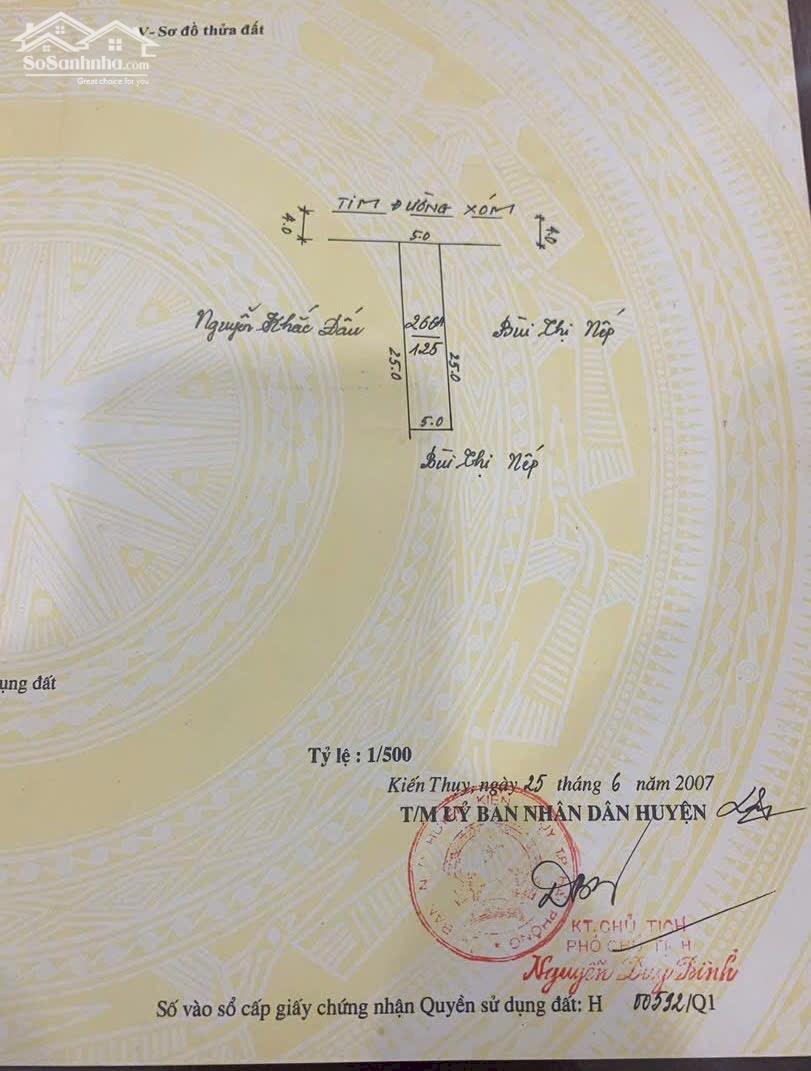 SoSanhnha.com
Great choice for you
V- Sơ đồ thửa đất
TIM ĐƯỜNG XÓM
4.0
5.0
4.0
Nguyễn Khắc Dấu
266A
125
25.0
25.0
Bùi Thị Nếp
5.0
Bùi Thị Nếp
ụng đất
Tỷ lệ : 1/500
Kiến Thụy, ngày 25 tháng 6 năm 2007
T/M UỶ BAN NHÂN DÂN HUYỆN
KT.CHỦ TỊCH
PHÓ CHỦ TỊCH
Nguyễn Duy Trinh
Số vào sổ cấp giấy chứng nhận Quyền sử dụng đất: H 00592/Q1